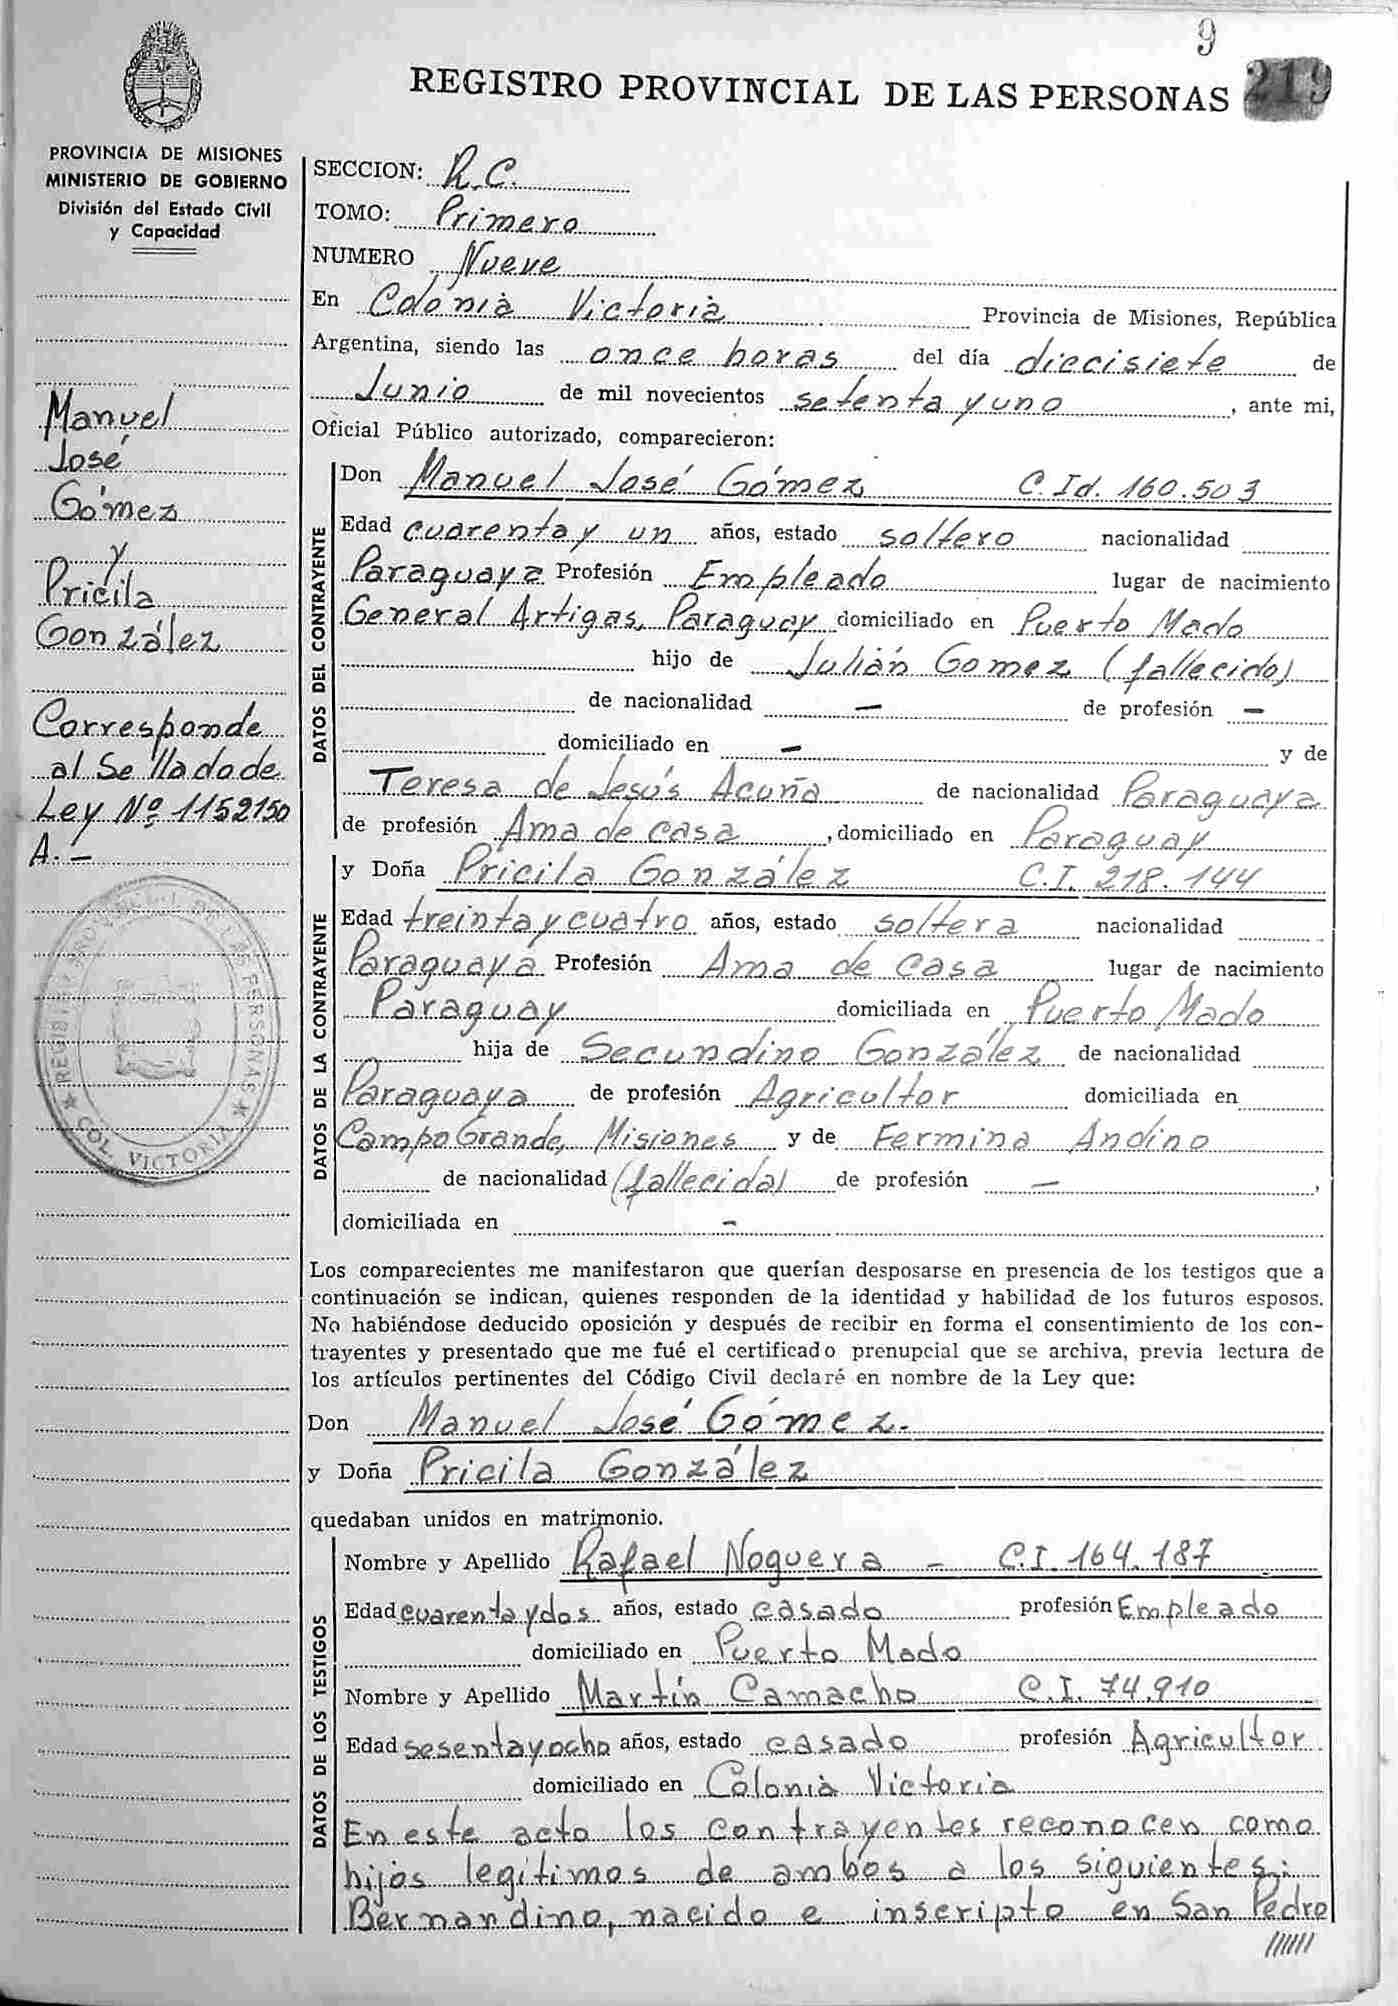 9
REGISTRO PROVINCIAL DE LAS PERSONAS 219
PROVINCIA DE MISIONES
MINISTERIO DE GOBIERNO
División del Estado Civil
y Capacidad
Manuel
José
Gómez
y
Pricila
González
Corresponde
al Sellado de
Ley Nº 1152150
A.-
REGISTRO PROVINCIAL DE LAS PERSONAS
COL. VICTORIA
SECCION: R.C.
TOMO: Primero
NUMERO Nueve
En Colonia Victoria Provincia de Misiones, República
Argentina, siendo las once horas del día diecisiete de
Junio de mil novecientos setenta y uno, ante mi,
Oficial Público autorizado, comparecieron:
DATOS DEL CONTRAYENTE
Don Manuel José Gómez C. Id. 160.503
Edad cuarenta y un años, estado soltero nacionalidad
Paraguaya Profesión Empleado lugar de nacimiento
General Artigas, Paraguay domiciliado en Puerto Mado
hijo de Julián Gomez (fallecido)
de nacionalidad — de profesión —
domiciliado en — y de
Teresa de Jesús Acuña de nacionalidad Paraguaya
de profesión Ama de casa, domiciliado en Paraguay
DATOS DE LA CONTRAYENTE
y Doña Pricila González C.I. 218.144
Edad treinta y cuatro años, estado soltera nacionalidad
Paraguaya Profesión Ama de casa lugar de nacimiento
Paraguay domiciliada en Puerto Mado
hija de Secundino González de nacionalidad
Paraguaya de profesión Agricultor domiciliada en
Campo Grande, Misiones y de Fermina Andino
de nacionalidad (fallecida) de profesión —,
domiciliada en -
Los comparecientes me manifestaron que querían desposarse en presencia de los testigos que a
continuación se indican, quienes responden de la identidad y habilidad de los futuros esposos.
No habiéndose deducido oposición y después de recibir en forma el consentimiento de los con-
trayentes y presentado que me fué el certificado prenupcial que se archiva, previa lectura de
los artículos pertinentes del Código Civil declaré en nombre de la Ley que:
Don Manuel José Gómez.
y Doña Pricila González
quedaban unidos en matrimonio.
DATOS DE LOS TESTIGOS
Nombre y Apellido Rafael Noguera - C.I. 164.187
Edad cuarenta y dos años, estado casado profesión Empleado
domiciliado en Puerto Mado
Nombre y Apellido Martín Camacho C.I. 74.910
Edad sesenta y ocho años, estado casado profesión Agricultor
domiciliado en Colonia Victoria
En este acto los contrayentes reconocen como
hijos legítimos de ambos a los siguientes:
Bernandino, nacido e inscripto en San Pedro
//////